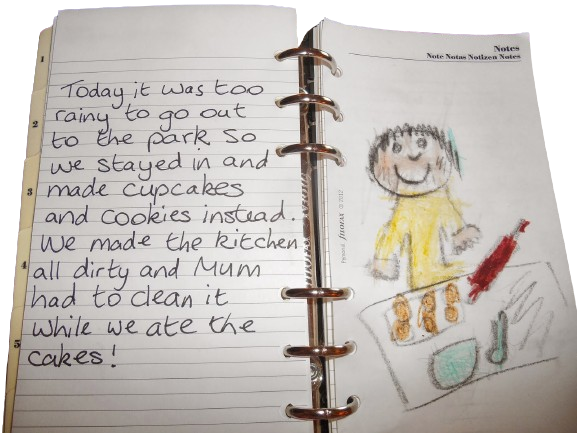 Today it was too
rainy to go out
to the park. So
we stayed in and
made cupcakes
and cookies instead.
We made the kitchen
all dirty and Mum
had to clean it
while we ate the
cakes!
1
2
3
4
5
Notes
Note Notas Notizen Notes
Personal filofax © 2012